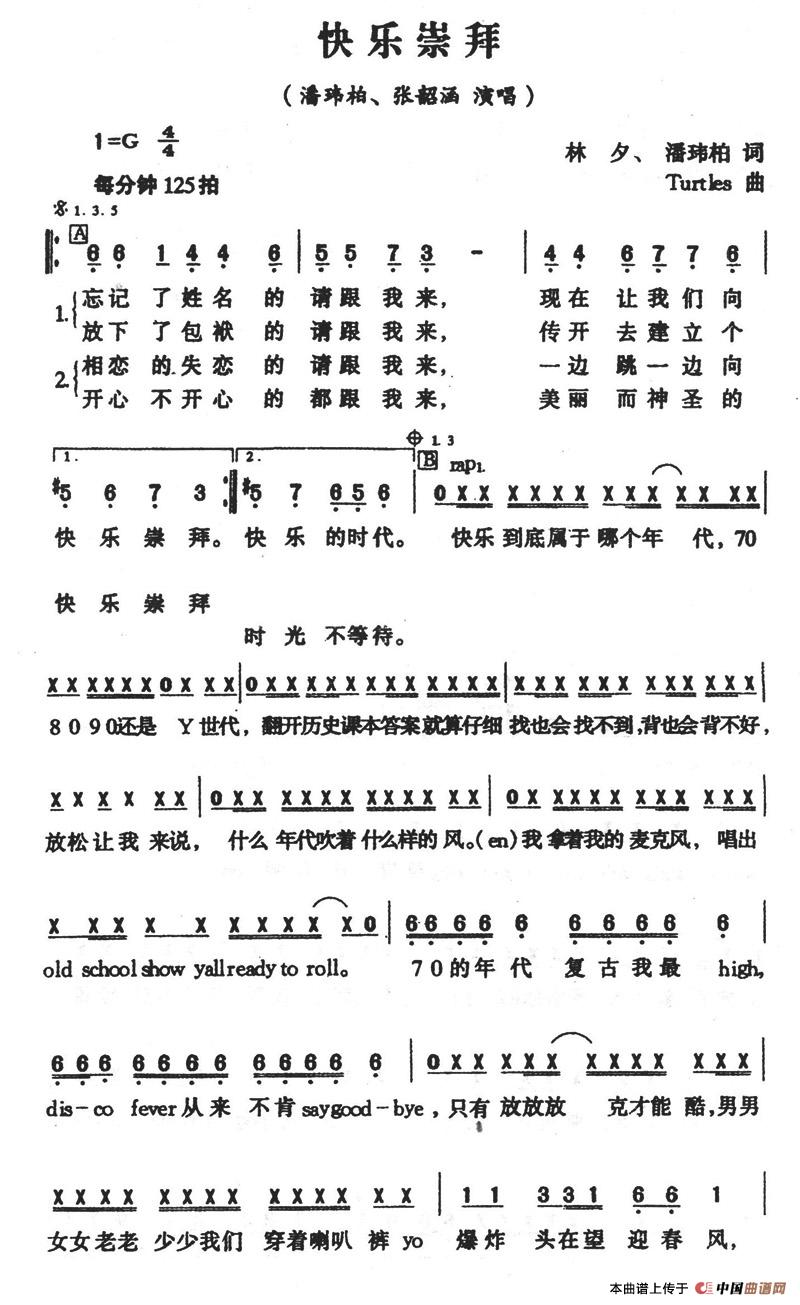 快乐崇拜
（潘玮柏、张韶涵 演唱）
1=G 4/4
林 夕、 潘玮柏 词
每分钟125拍
Turtles 曲
1. 3. 5
A
6 6 1 4 4 6 | 5 5 7 3 - | 4 4 6 7 7 6 |
1. 忘记 了姓名 的请跟 我来， 现在 让我们向
放下 了包袱 的请跟 我来， 传开 去建立个
2. 相恋 的.失恋 的请跟 我来， 一边 跳一边向
开心 不开心 的都跟 我来， 美丽 而神圣的
1. 2. 1. 3
B rap1.
#5 6 7 3 :| #5 7 6 5 6 | 0 X X X X X X X X X X X X X
快 乐 崇 拜。 快 乐 的时代。 快乐 到底属于 哪个年 代，70
快 乐 崇 拜
时 光 不等待。
X X X X X X 0 X X X | 0 X X X X X X X X X X X X X X | X X X X X X X X X X X X X X |
8 0 9 0还是 Y 世代， 翻开历史课本答案就算仔细 找也会找不到，背也会背不好，
X X X X X X | 0 X X X X X X X X X X X X | 0 X X X X X X X X X X X X X |
放松让我 来说， 什么 年代吹着 什么样的 风。（en）我 拿着我的 麦克风， 唱出
X X X X X X X X X X X X 0 | 6 6 6 6 6 6 6 6 6 6 6 6 |
old school show yall ready to roll。 7 0的年代 复古我最 high，
6 6 6 6 6 6 6 6 6 6 6 6 | 0 X X X X X X X X X X X X X |
dis–co fever从来 不肯 say good–bye，只有 放放放 克才能 酷，男男
X X X X X X X X X X X X X X | 1 1 3 3 1 6 6 1 |
女女老老 少少我们 穿着喇叭 裤 yo 爆炸 头在望 迎春 风，
本曲谱上传于 中国曲谱网